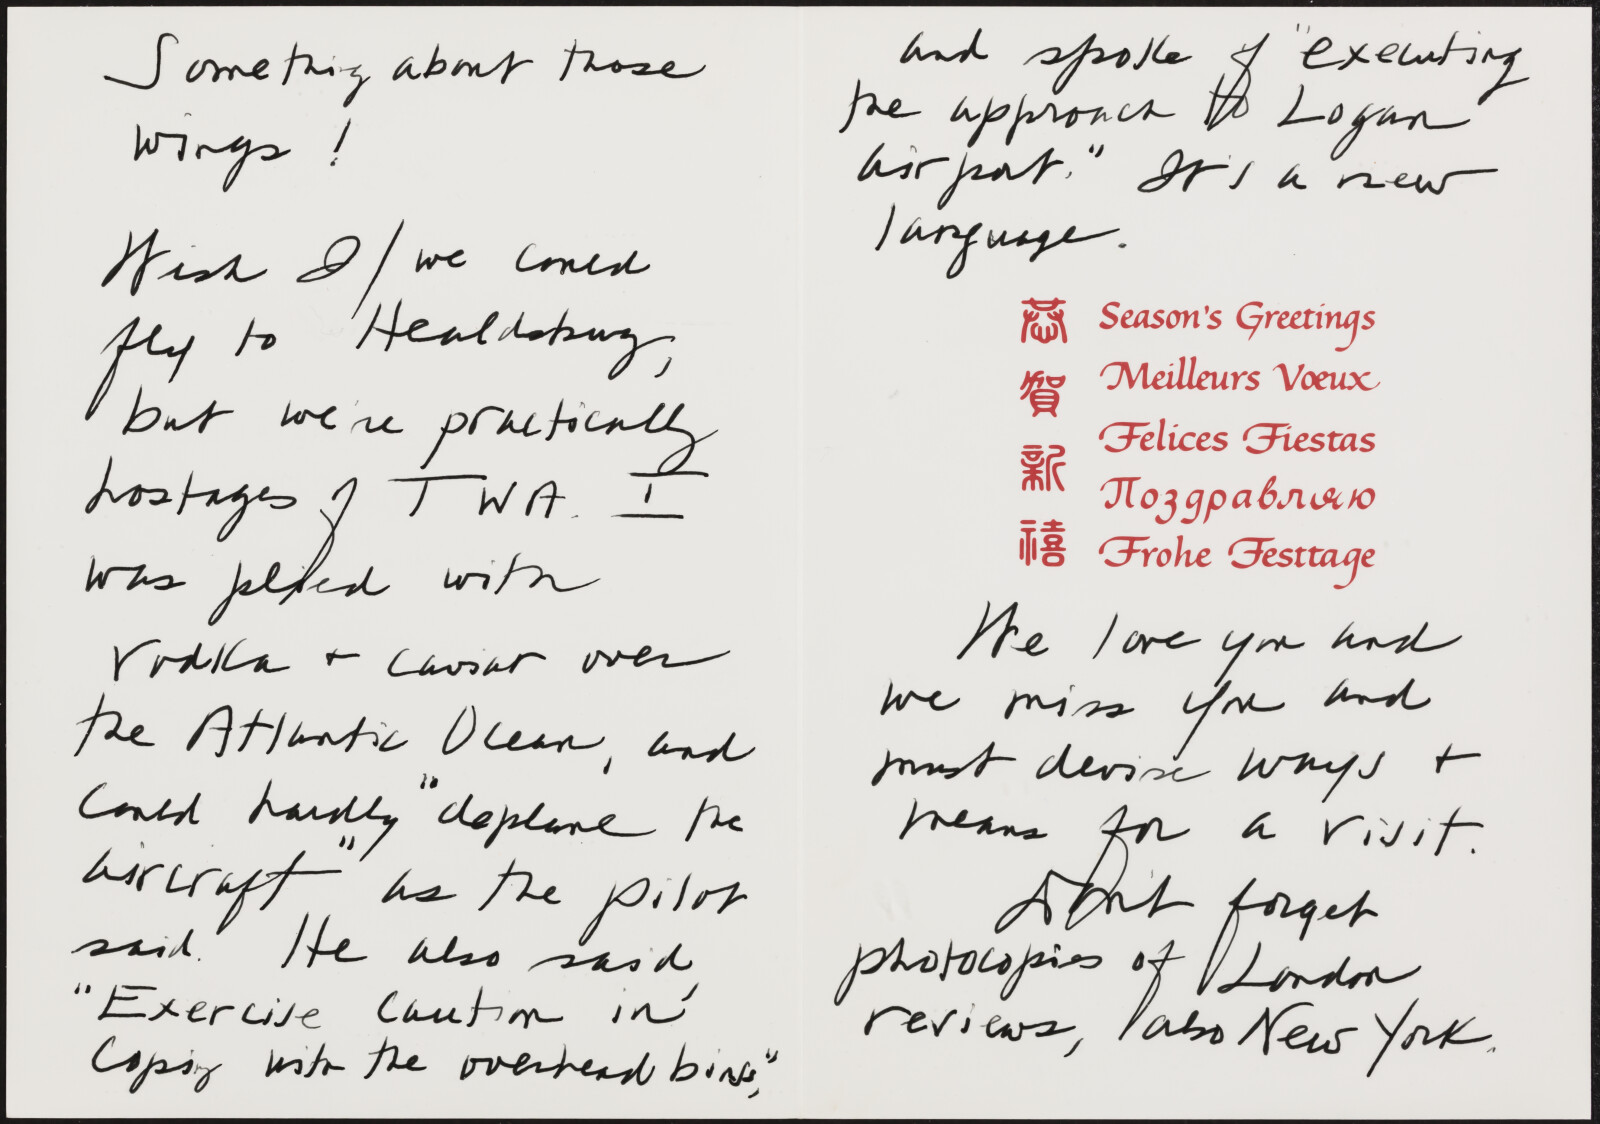 Something about those
wings!
Wish I/we could
fly to Healdsburg,
but we're practically
hostages of TWA. I
was plied with
vodka + caviar over
the Atlantic Ocean, and
could hardly "deplane the
aircraft" as the pilot
said. He also said,
"Exercise caution in
coping with the overhead bins,"
and spoke of "executing
the approach to Logan
airport." It's a new
language.
恭賀新禧
Season's Greetings
Meilleurs Vœux
Felices Fiestas
Поздравляю
Frohe Festtage
We love you and
we miss you and
must devise ways +
means for a visit.
Don't forget
photocopies of London
reviews, also New York.